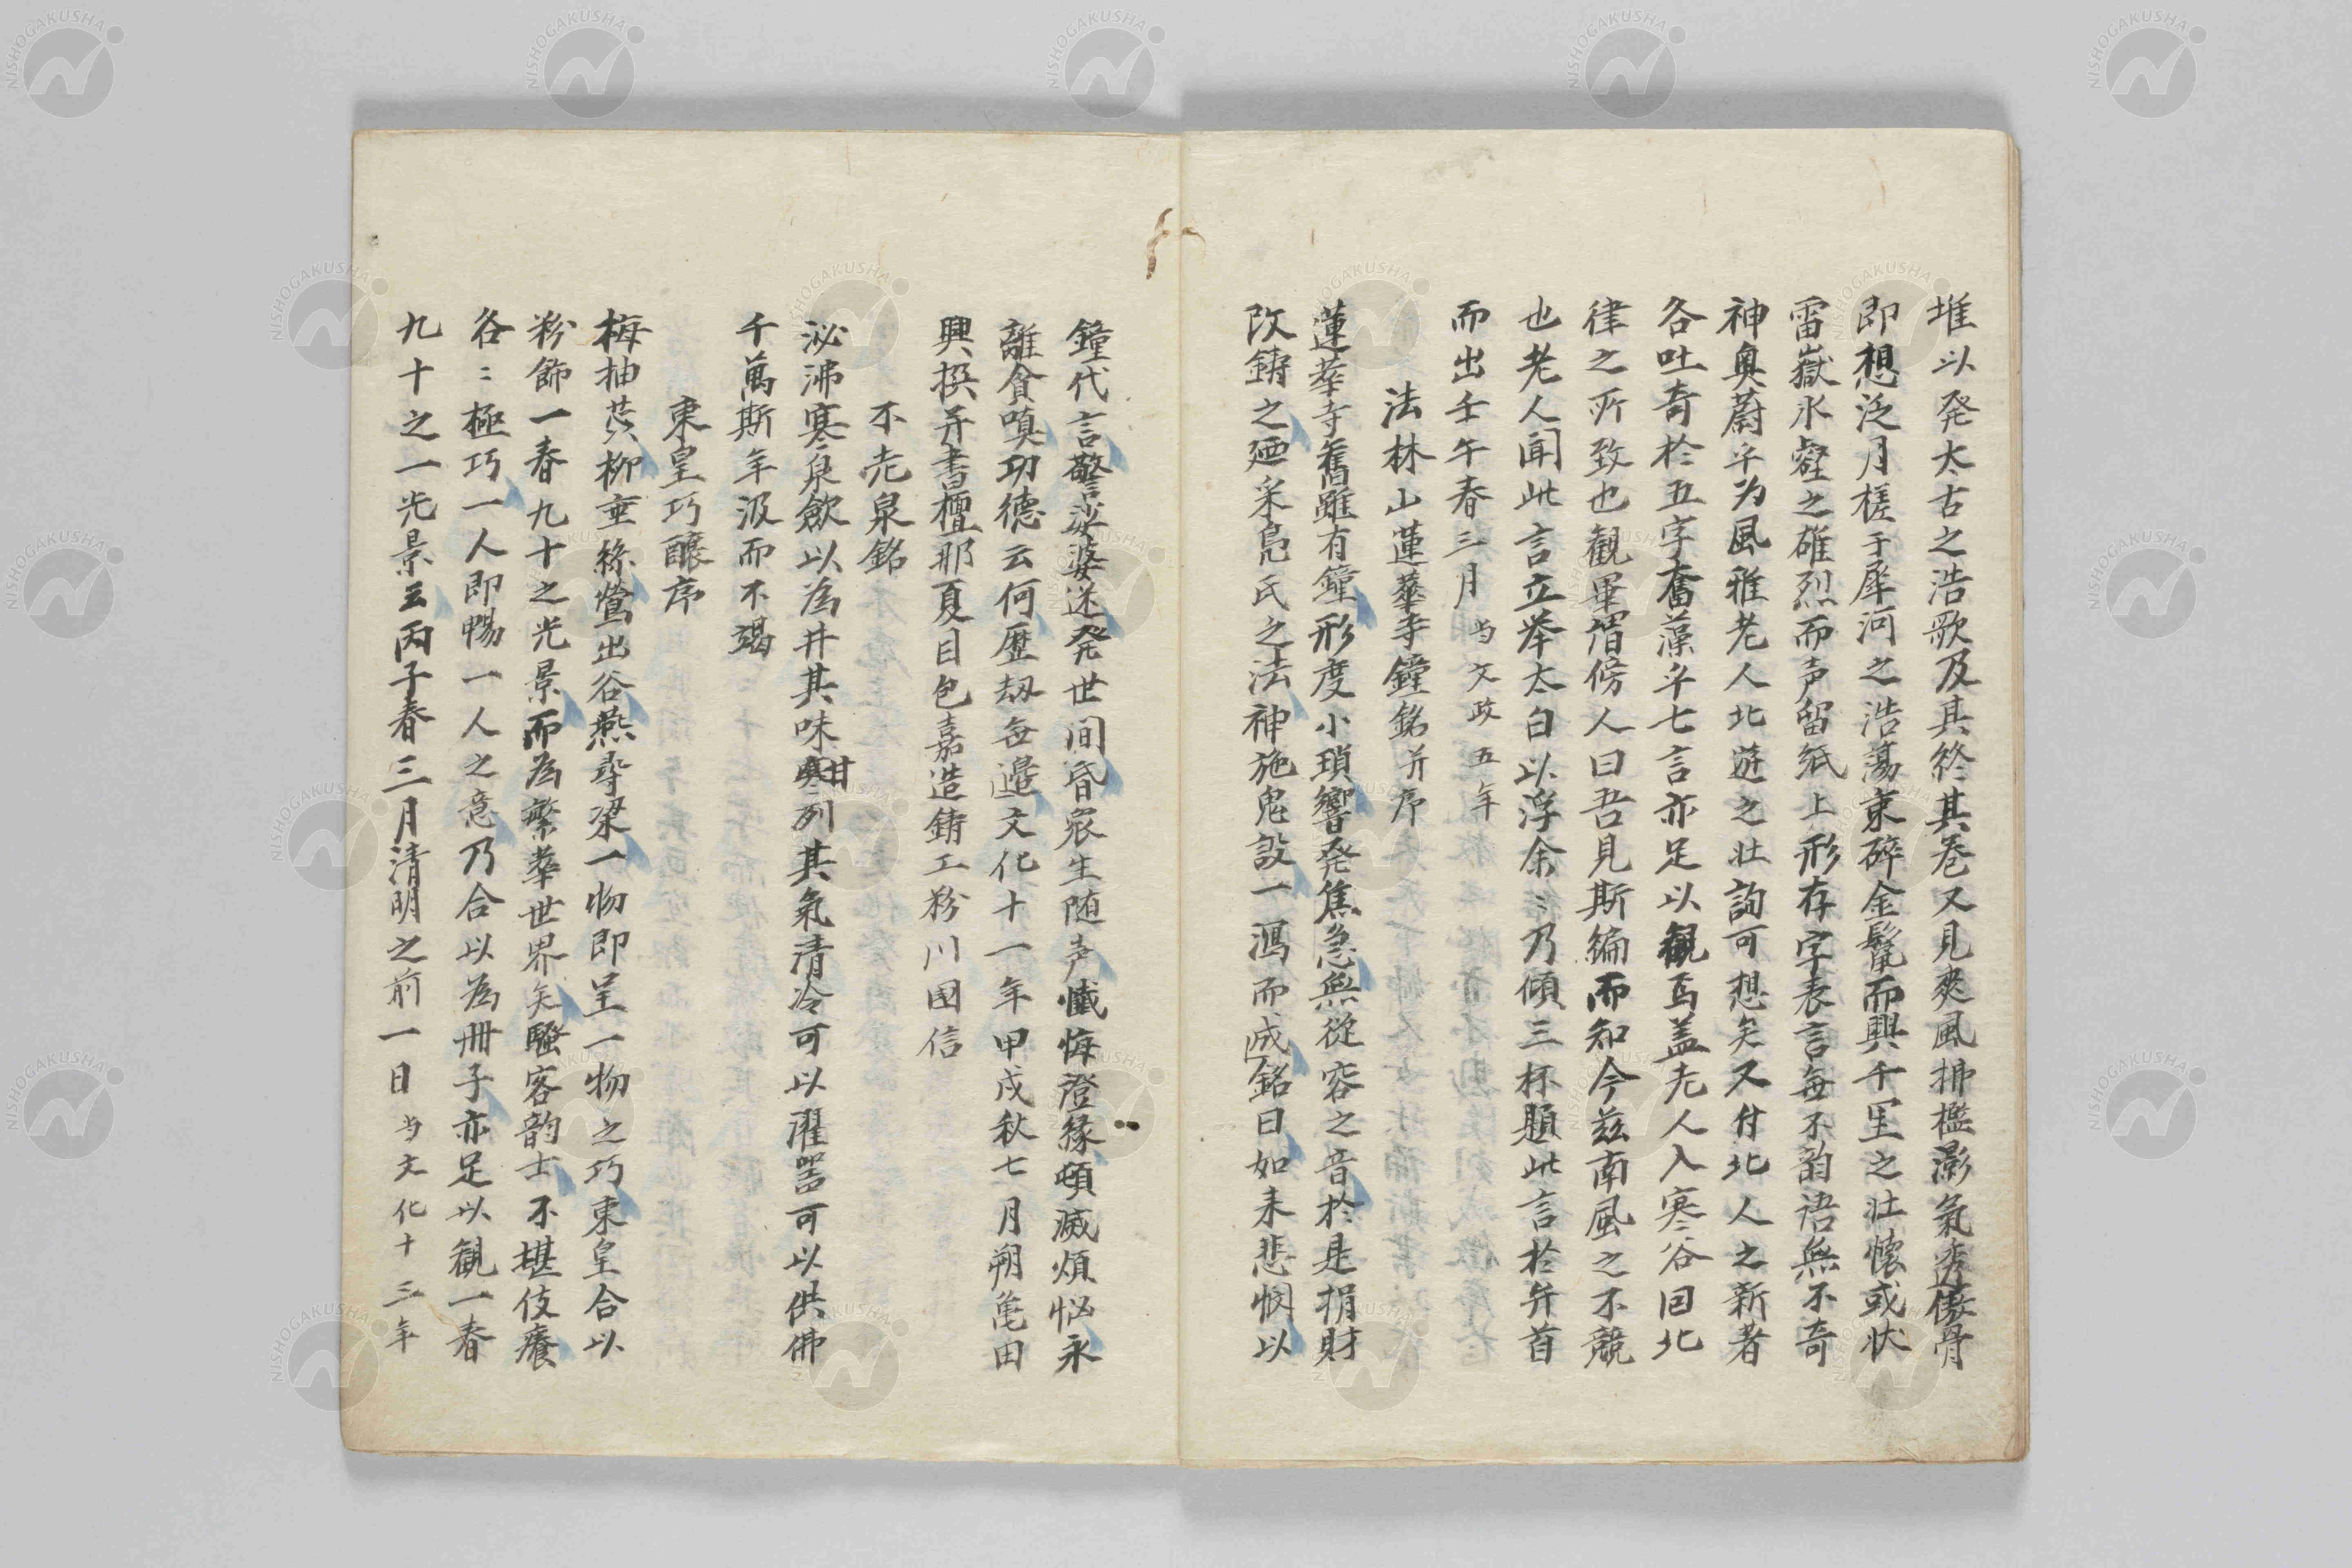 堆以発太古之浩歌及其終其巻又見爽風拂檻灝氣透傲骨
即想泛月槎于犀河之浩蕩東碎金鬣而興千里之壮懐或状
雷嶽氷壑之雄烈而声留紙上形存字表言每不韵語無不奇
神奥蔚乎为風雅老人北遊之壮詢可想矣又付北人之新著
各吐奇於五字奮藻乎七言亦足以観焉盖老人入寒谷回北
律之所致也観畢謂傍人曰吾見斯編而知今茲南風之不競
也老人聞此言立挙太白以浮余〻乃傾三杯題此言於弁首
而出壬午春三月 当文政五年
法林山蓮華寺鐘銘并序
蓮華寺舊雖有鐘形度小瑣響発焦急無從容之音於是捐財
改鋳之廼采鳧氏之法神施鬼設一瀉而成銘曰如来悲憫以
鐘代言警娑婆迷発世间昏衆生随声懺悔證緣頓滅煩悩永
離貪嗔功德云何歴劫每邉文化十一年甲戌秋七月朔亀田
興撰并書檀那夏目包嘉造鋳工粉川国信
不老泉銘
泌沸寒泉歛以為井其味甘列其氣清冷可以濯罍可以供佛
千萬斯年汲而不竭
東皇巧醸序
梅抽英柳垂絲鶯出谷燕尋梁一物即呈一物之巧東皇合以
粉飾一春九十之光景而為繁華世界矣騒客韵士不堪伎癢
各〻極巧一人即暢一人之意乃合以為冊子亦足以観一春
九十之一光景云丙子春三月清明之前一日 当文化十三年
NISHOGAKUSHA